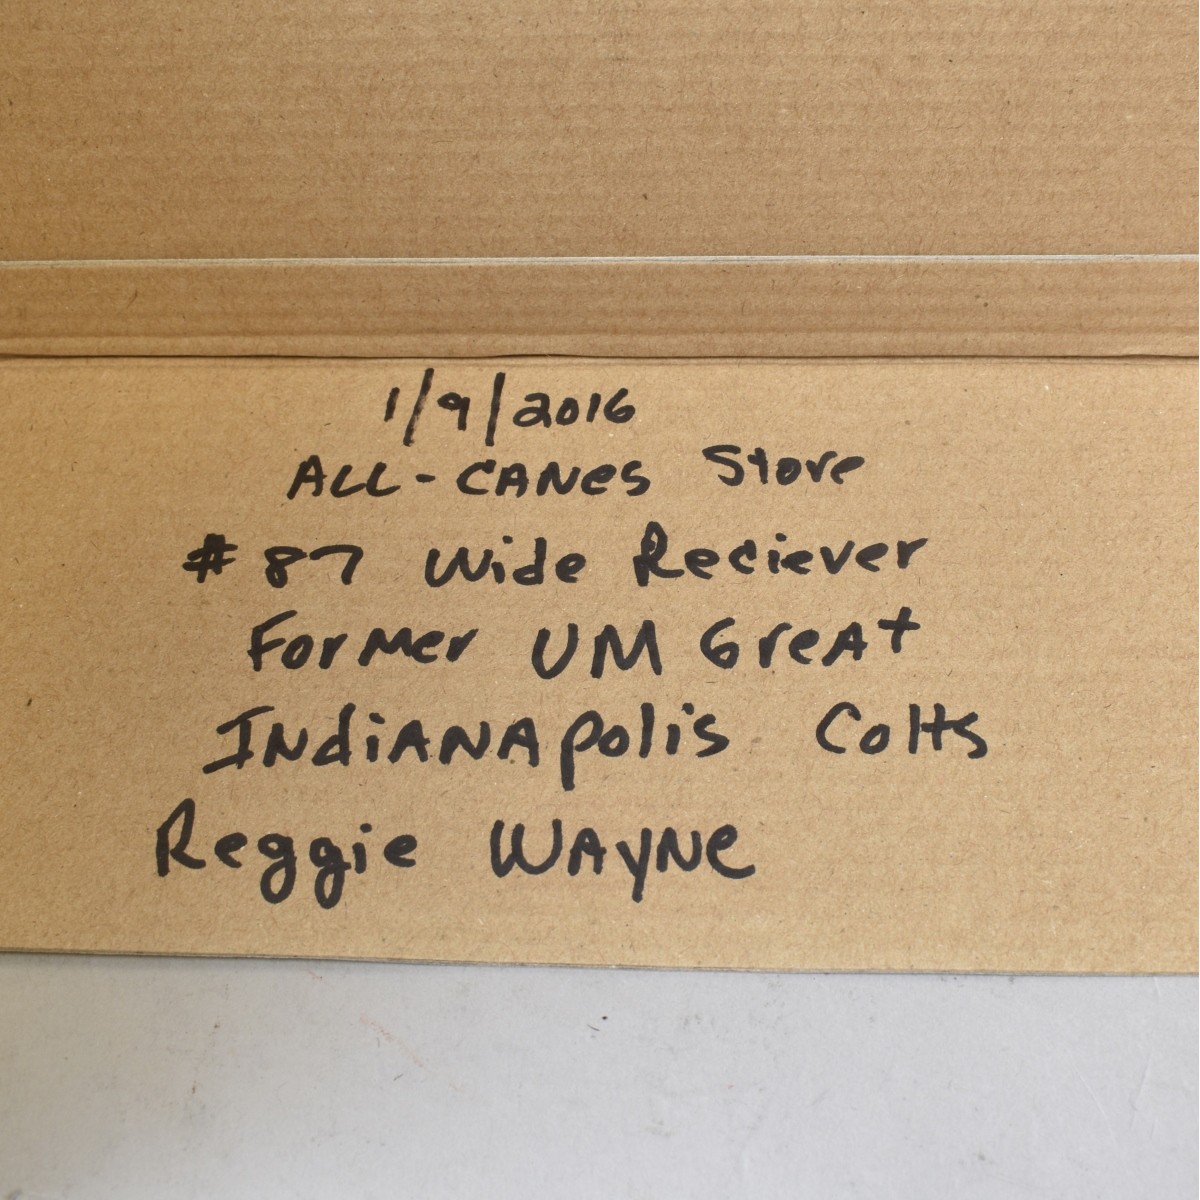 1/9/2016
ALL-CANes Store
#87 Wide Reciever
Former UM GreAt
INdiANApolis Colts
Reggie WAyNe